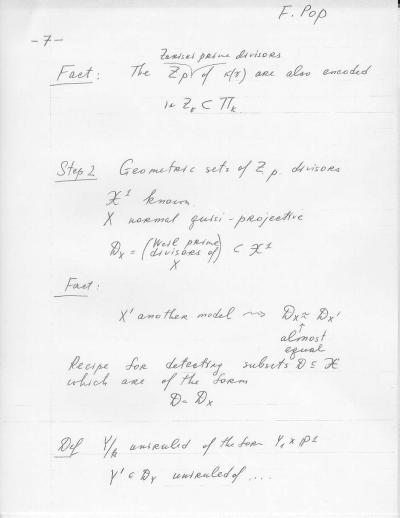 F. Pop
-7-
Zariski prime divisors
Fact: The Z p. v of κ(v) are also encoded
in Z_v ⊂ Π_K
Step 2 Geometric sets of Z p. divisors
𝒳¹ known.
X normal quasi-projective
D_X = (Weil prime divisors of X) ⊂ 𝒳¹
Fact:
X' another model ⇝ D_X ≈ D_X'
↑
almost
equal
Recipe for detecting subsets D ⊆ 𝒳
which are of the form
D = D_X
Def Y/k uniruled of the form Y₁ × P¹
Y' ∈ D_Y uniruled of ....